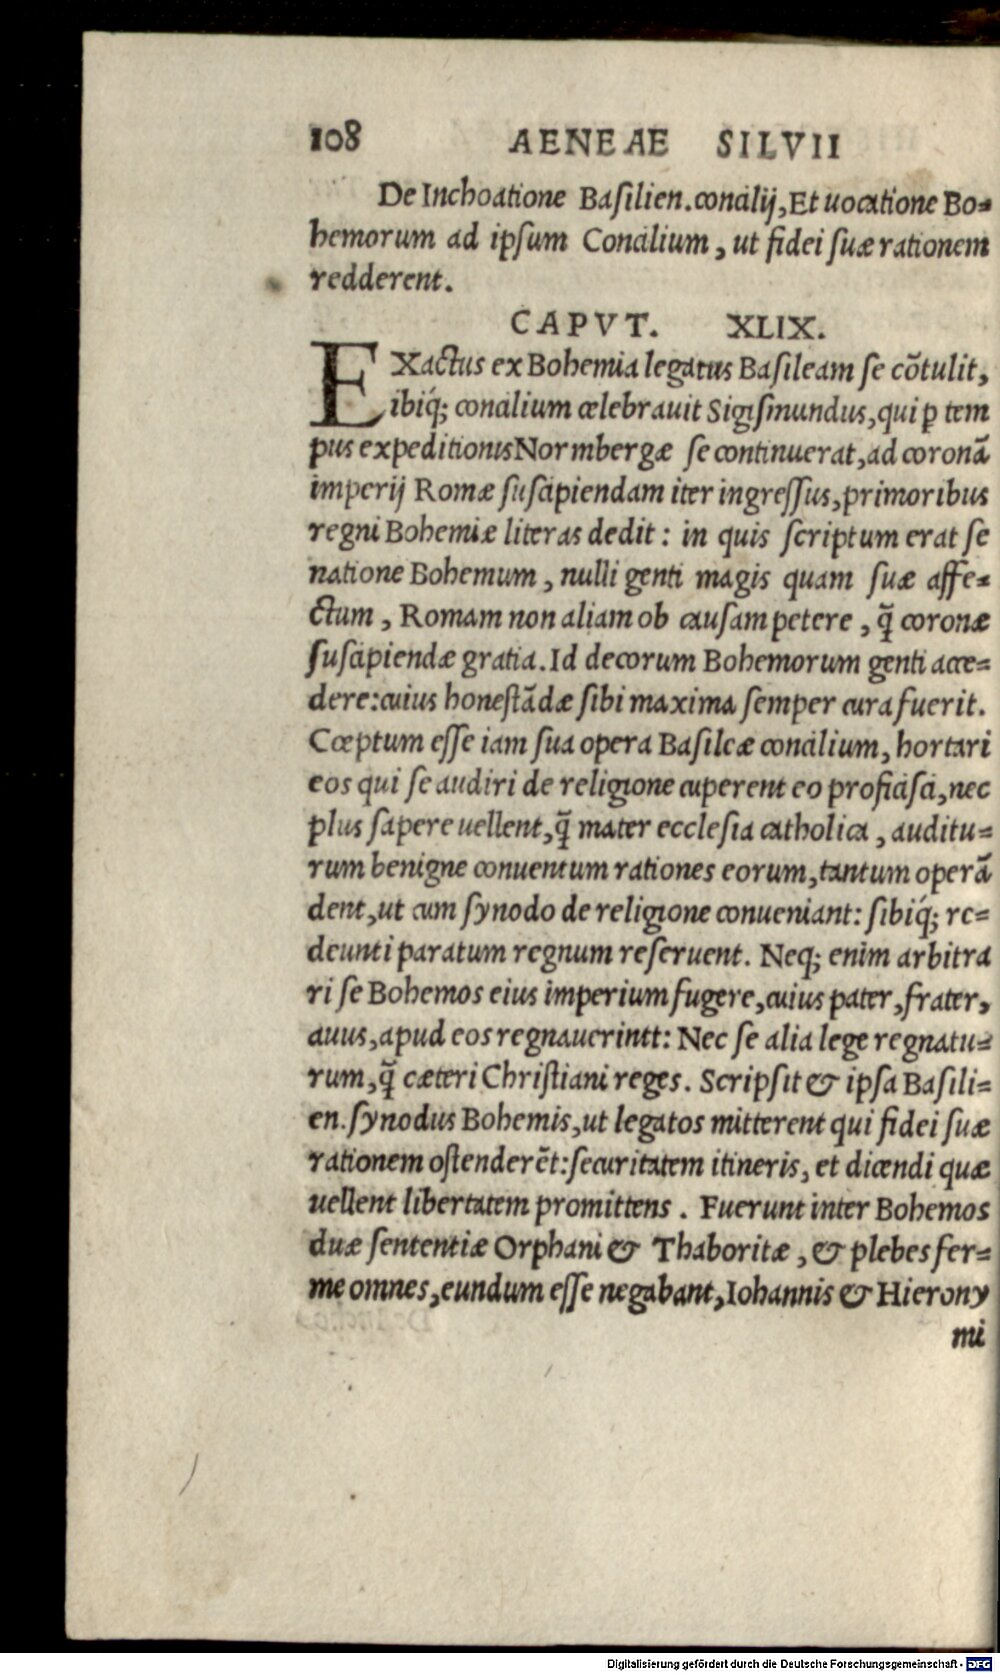 108 AENEAE SILVII
De Inchoatione Basilien. concilij, Et uocatione Bo-
hemorum ad ipsum Concilium, ut fidei suæ rationem
redderent.
CAPVT. XLIX.
EXactus ex Bohemia legatus Basileam se cõtulit,
ibiq́; concilium celebrauit Sigismundus, qui ꝑ tem
pus expeditionis Normbergæ se continuerat, ad coronã
imperij Romæ suscipiendam iter ingressus, primoribus
regni Bohemiæ literas dedit: in quis scriptum erat se
natione Bohemum, nulli genti magis quam suæ affe-
ctum, Romam non aliam ob causam petere, q̃ coronæ
suscipiendæ gratia. Id decorum Bohemorum genti acce-
dere: cuius honestãdæ sibi maxima semper cura fuerit.
Cœptum esse iam sua opera Basileæ concilium, hortari
eos qui se audiri de religione cuperent eo proficisci, nec
plus sapere uellent, q̃ mater ecclesia catholica, auditu-
rum benigne conuentum rationes eorum, tantum operã
dent, ut cum synodo de religione conueniant: sibiq́; re-
deunti paratum regnum reseruent. Neq; enim arbitra
ri se Bohemos eius imperium fugere, cuius pater, frater,
auus, apud eos regnauerintt: Nec se alia lege regnatu-
rum, q̃ cæteri Christiani reges. Scripsit & ipsa Basili-
en. synodus Bohemis, ut legatos mitterent qui fidei suæ
rationem ostenderẽt: securitatem itineris, et dicendi quæ
uellent libertatem promittens. Fuerunt inter Bohemos
duæ sententiæ Orphani & Thaboritæ, & plebes fer-
me omnes, eundum esse negabant, Iohannis & Hierony
mi
Digitalisierung gefördert durch die Deutsche Forschungsgemeinschaft - DFG